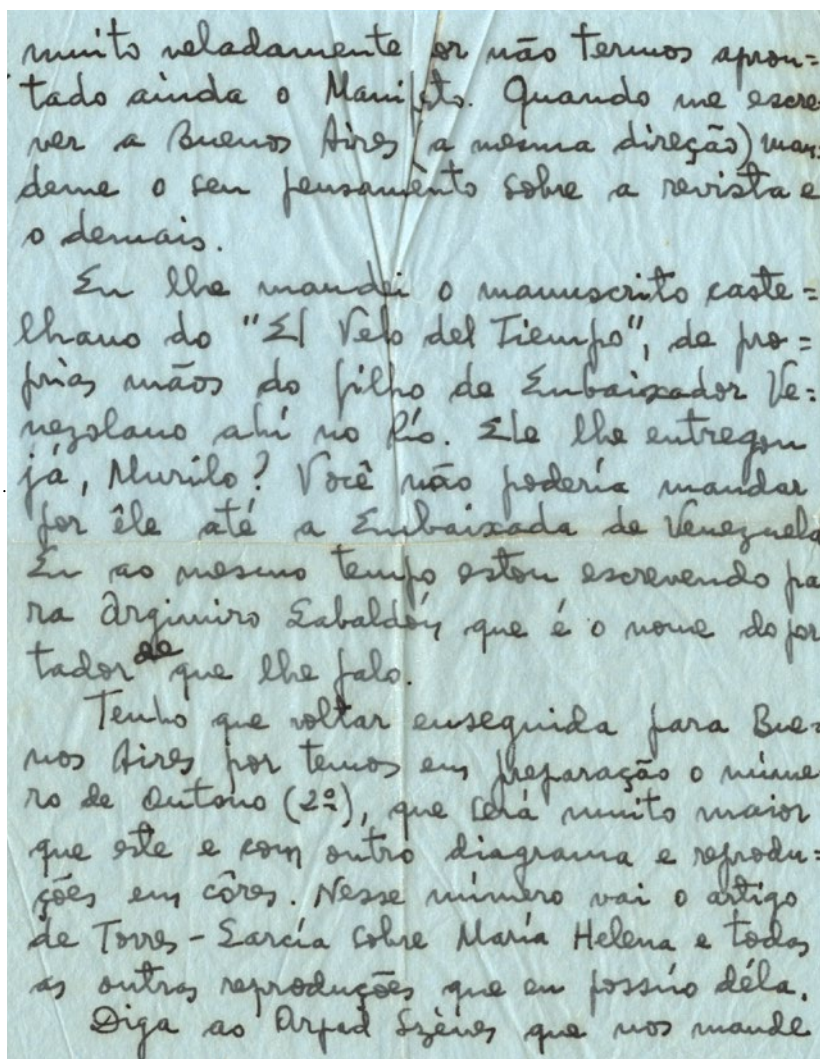 muito veladamente por não termos apron=
tado ainda o Manifesto. Quando me escre
ver a Buenos Aires (a mesma direção) man=
deme o seu pensamento sobre a revista e
o demais.
Eu lhe mandei o manuscrito caste=
lhano do "El Velo del Tiempo", de pro=
prias mãos do filho de Embaixador Ve=
nezolano ahí no Río. Ele lhe entregou
já, Murilo? Você não poderia mandar
por êle até a Embaixada de Venezuela
Eu ao mesmo tempo estou escrevendo pa
ra Argimiro Gabaldón que é o nome do por
tador de que lhe falo.
Tenho que voltar enseguida para Bue=
nos Aires por temos em preparação o núme
ro de Outono (2º), que será muito maior
que este e com outro diagrama e reprodu=
ções em côres. Nesse número vai o artigo
de Torres-García sobre María Helena e todas
as outras reproduções que eu possúo déla.
Diga ao Arpad Szènes que nos mande